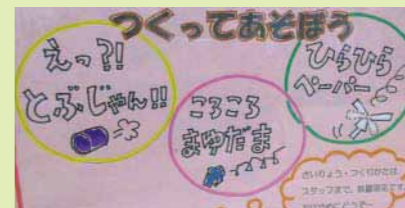 つくってあそぼう
えっ?!
とぶじゃん!!
ころころ
まゆだま
ひらひら
ペーパー
ざいりょう・つくりかたは
スタッフまで、